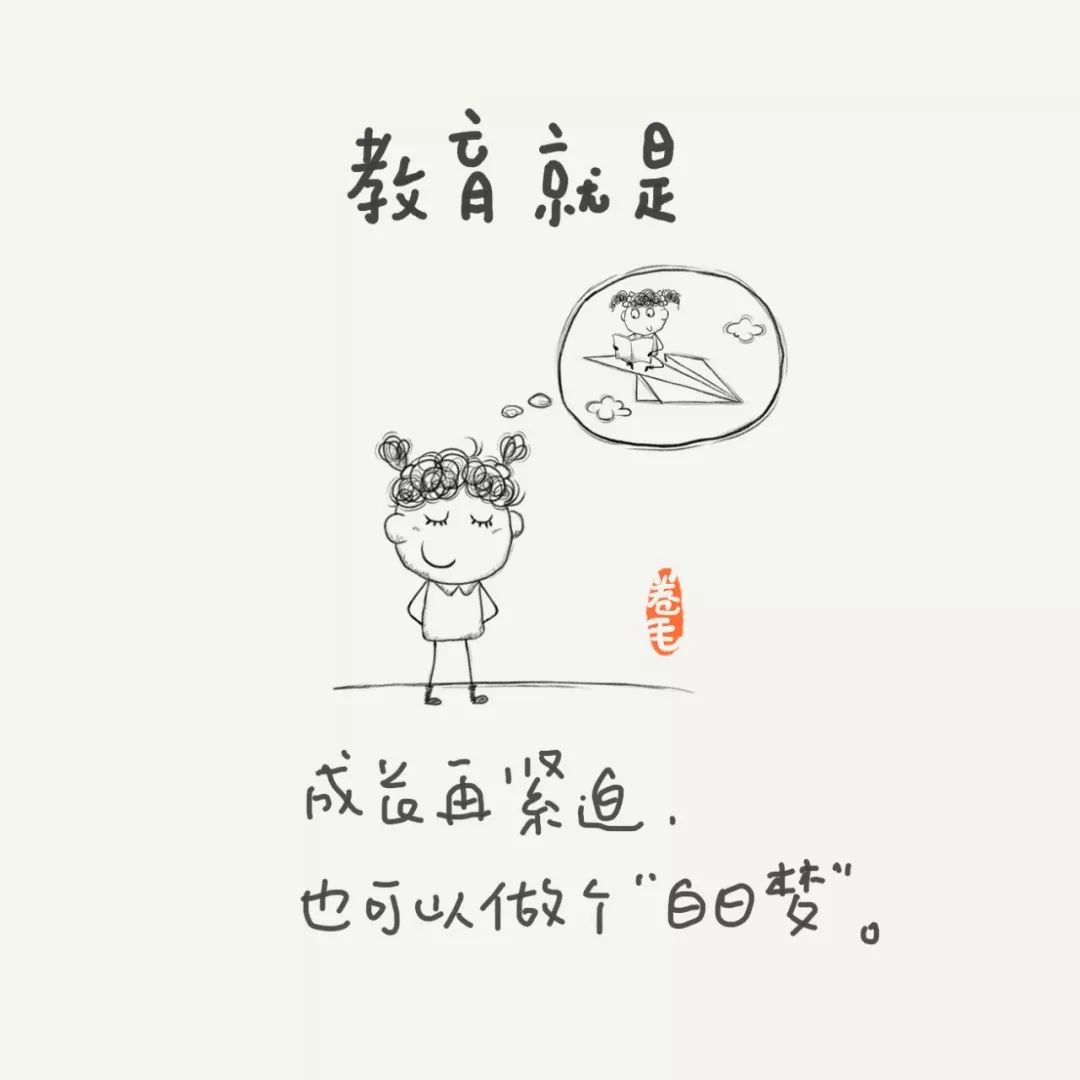 教育就是
卷毛
成长再紧迫，
也可以做个“白日梦”。